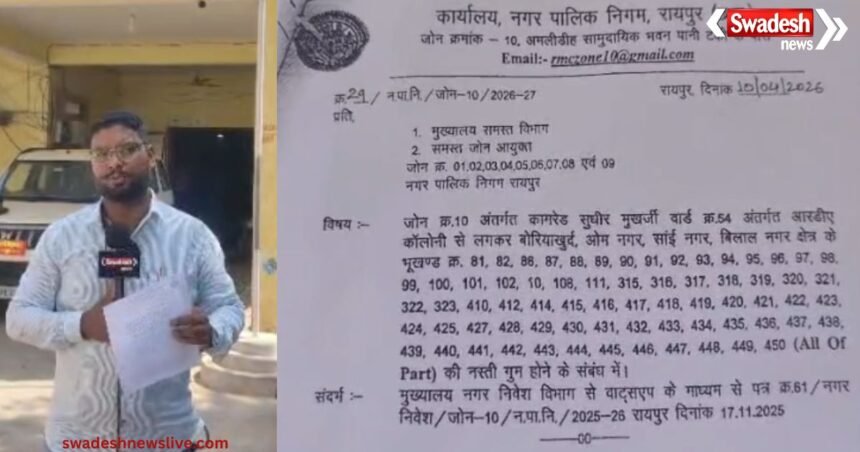 Swadesh
news
कार्यालय, नगर पालिक निगम, रायपुर
जोन क्रमांक – 10, अमलीडीह सामुदायिक भवन पानी
Email:- rmczone10@gmail.com
क्र.29 / न.पा.नि. / जोन-10 / 2026-27
रायपुर, दिनांक 10/04/2026
प्रति,
1. मुख्यालय समस्त विभाग
2. समस्त जोन आयुक्त
जोन क्र. 01,02,03,04,05,06,07,08 एवं 09
नगर पालिक निगम रायपुर
विषय :- जोन क्र.10 अंतर्गत कामरेड सुधीर मुखर्जी वार्ड क्र.54 अंतर्गत आरडीए
कॉलोनी से लगकर बोरियाखुर्द, ओम नगर, सांई नगर, बिलाल नगर क्षेत्र के
भूखण्ड क्र. 81, 82, 86, 87, 88, 89, 90, 91, 92, 93, 94, 95, 96, 97, 98,
99, 100, 101, 102, 10, 108, 111, 315, 316, 317, 318, 319, 320, 321,
322, 323, 410, 412, 414, 415, 416, 417, 418, 419, 420, 421, 422, 423,
424, 425, 427, 428, 429, 430, 431, 432, 433, 434, 435, 436, 437, 438,
439, 440, 441, 442, 443, 444, 445, 446, 447, 448, 449, 450 (All Of
Part) की नस्ती गुम होने के संबंध में।
संदर्भ :- मुख्यालय नगर निवेश विभाग से वाट्सएप के माध्यम से पत्र क्र.61/नगर
निवेश/जोन-10/न.पा.नि./2025-26 रायपुर दिनांक 17.11.2025
——00——
Swadesh
news
swadeshnewslive.com